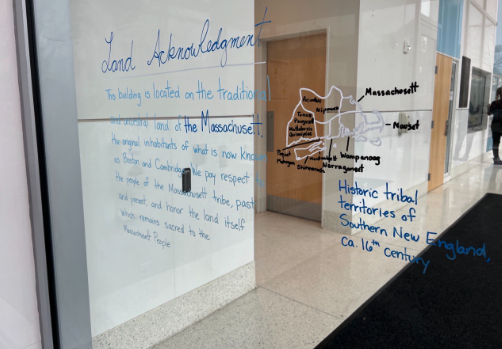 Land Acknowledgment
This building is located on the traditional
and ancestral land of the Massachusett,
the original inhabitants of what is now known
as Boston and Cambridge. We pay respect to
the people of the Massachusett tribe, past
and present, and honor the land itself
which remains sacred to the
Massachusett People
Massachusett
Nipmuck
Nauset
Wampanoag
Narragansett
Historic tribal
territories of
Southern New England,
Ca. 16th century